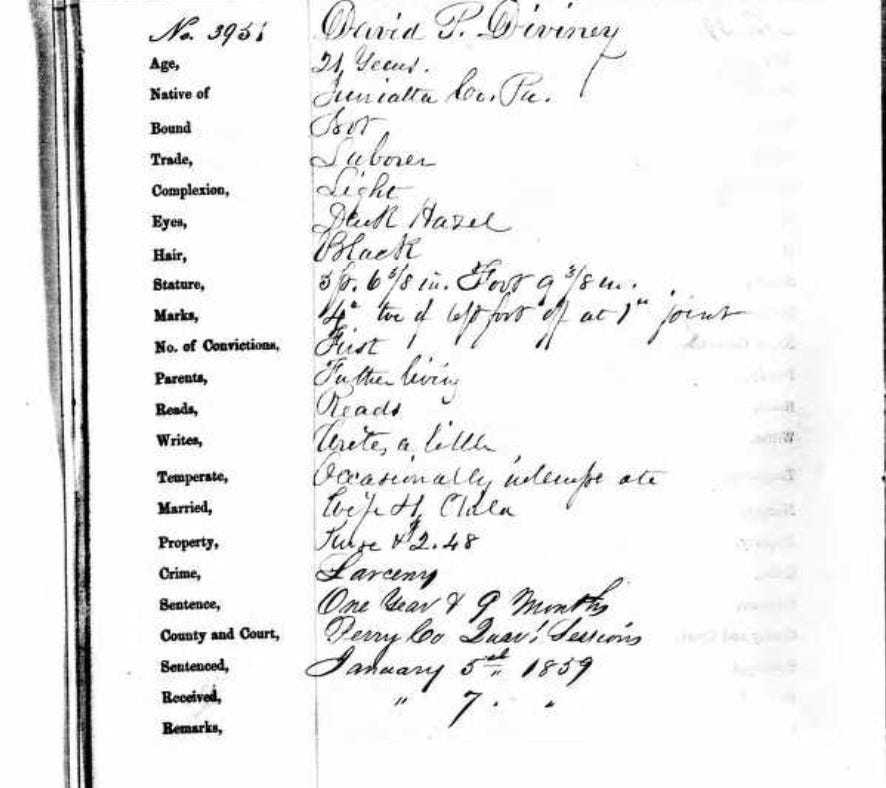 No. 3951 David P. Diviney
Age, 21 Years.
Native of Juniatta Co. Pa.
Bound Not
Trade, Laborer
Complexion, Light
Eyes, Dark Hazel
Hair, Black
Stature, 5 ft. 6 3/8 in. Foot 9 3/8 in.
Marks, 4" toe of left foot off at 1st joint
No. of Convictions, First
Parents, Father living
Reads, Reads
Writes, Writes a little
Temperate, Occasionally intemperate
Married, Wife & Child
Property, Purse & $2.48
Crime, Larceny
Sentence, One Year & 9 Months
County and Court, Perry Co Quar. Sessions
Sentenced, January 5th 1859
Received, " 7. "
Remarks,